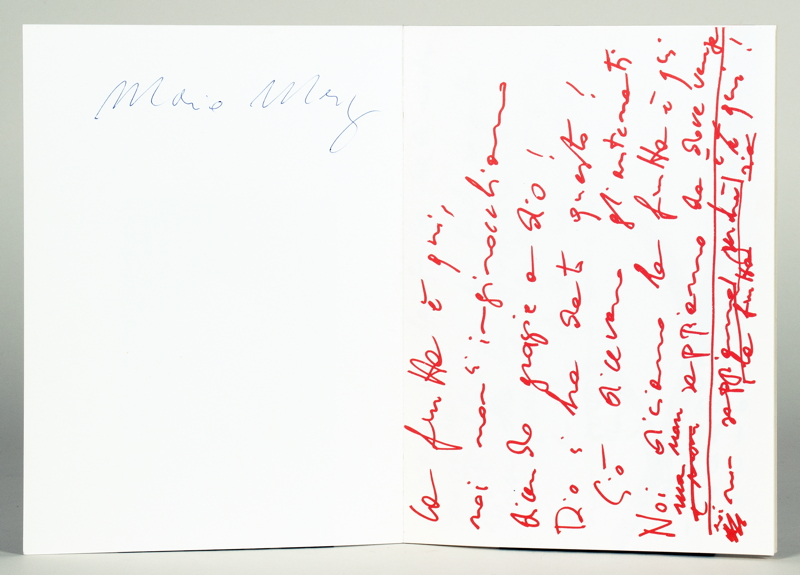 Mario Merz
La frutta è qui,
noi non ci inginocchiamo
dicendo grazie a dio!
Dio ci ha dato questo!
Ciò dicevano gli antenati
Noi diciamo la frutta è qui
ma non sappiamo da dove venga
noi non sappiamo perchè
la frutta sia qui!